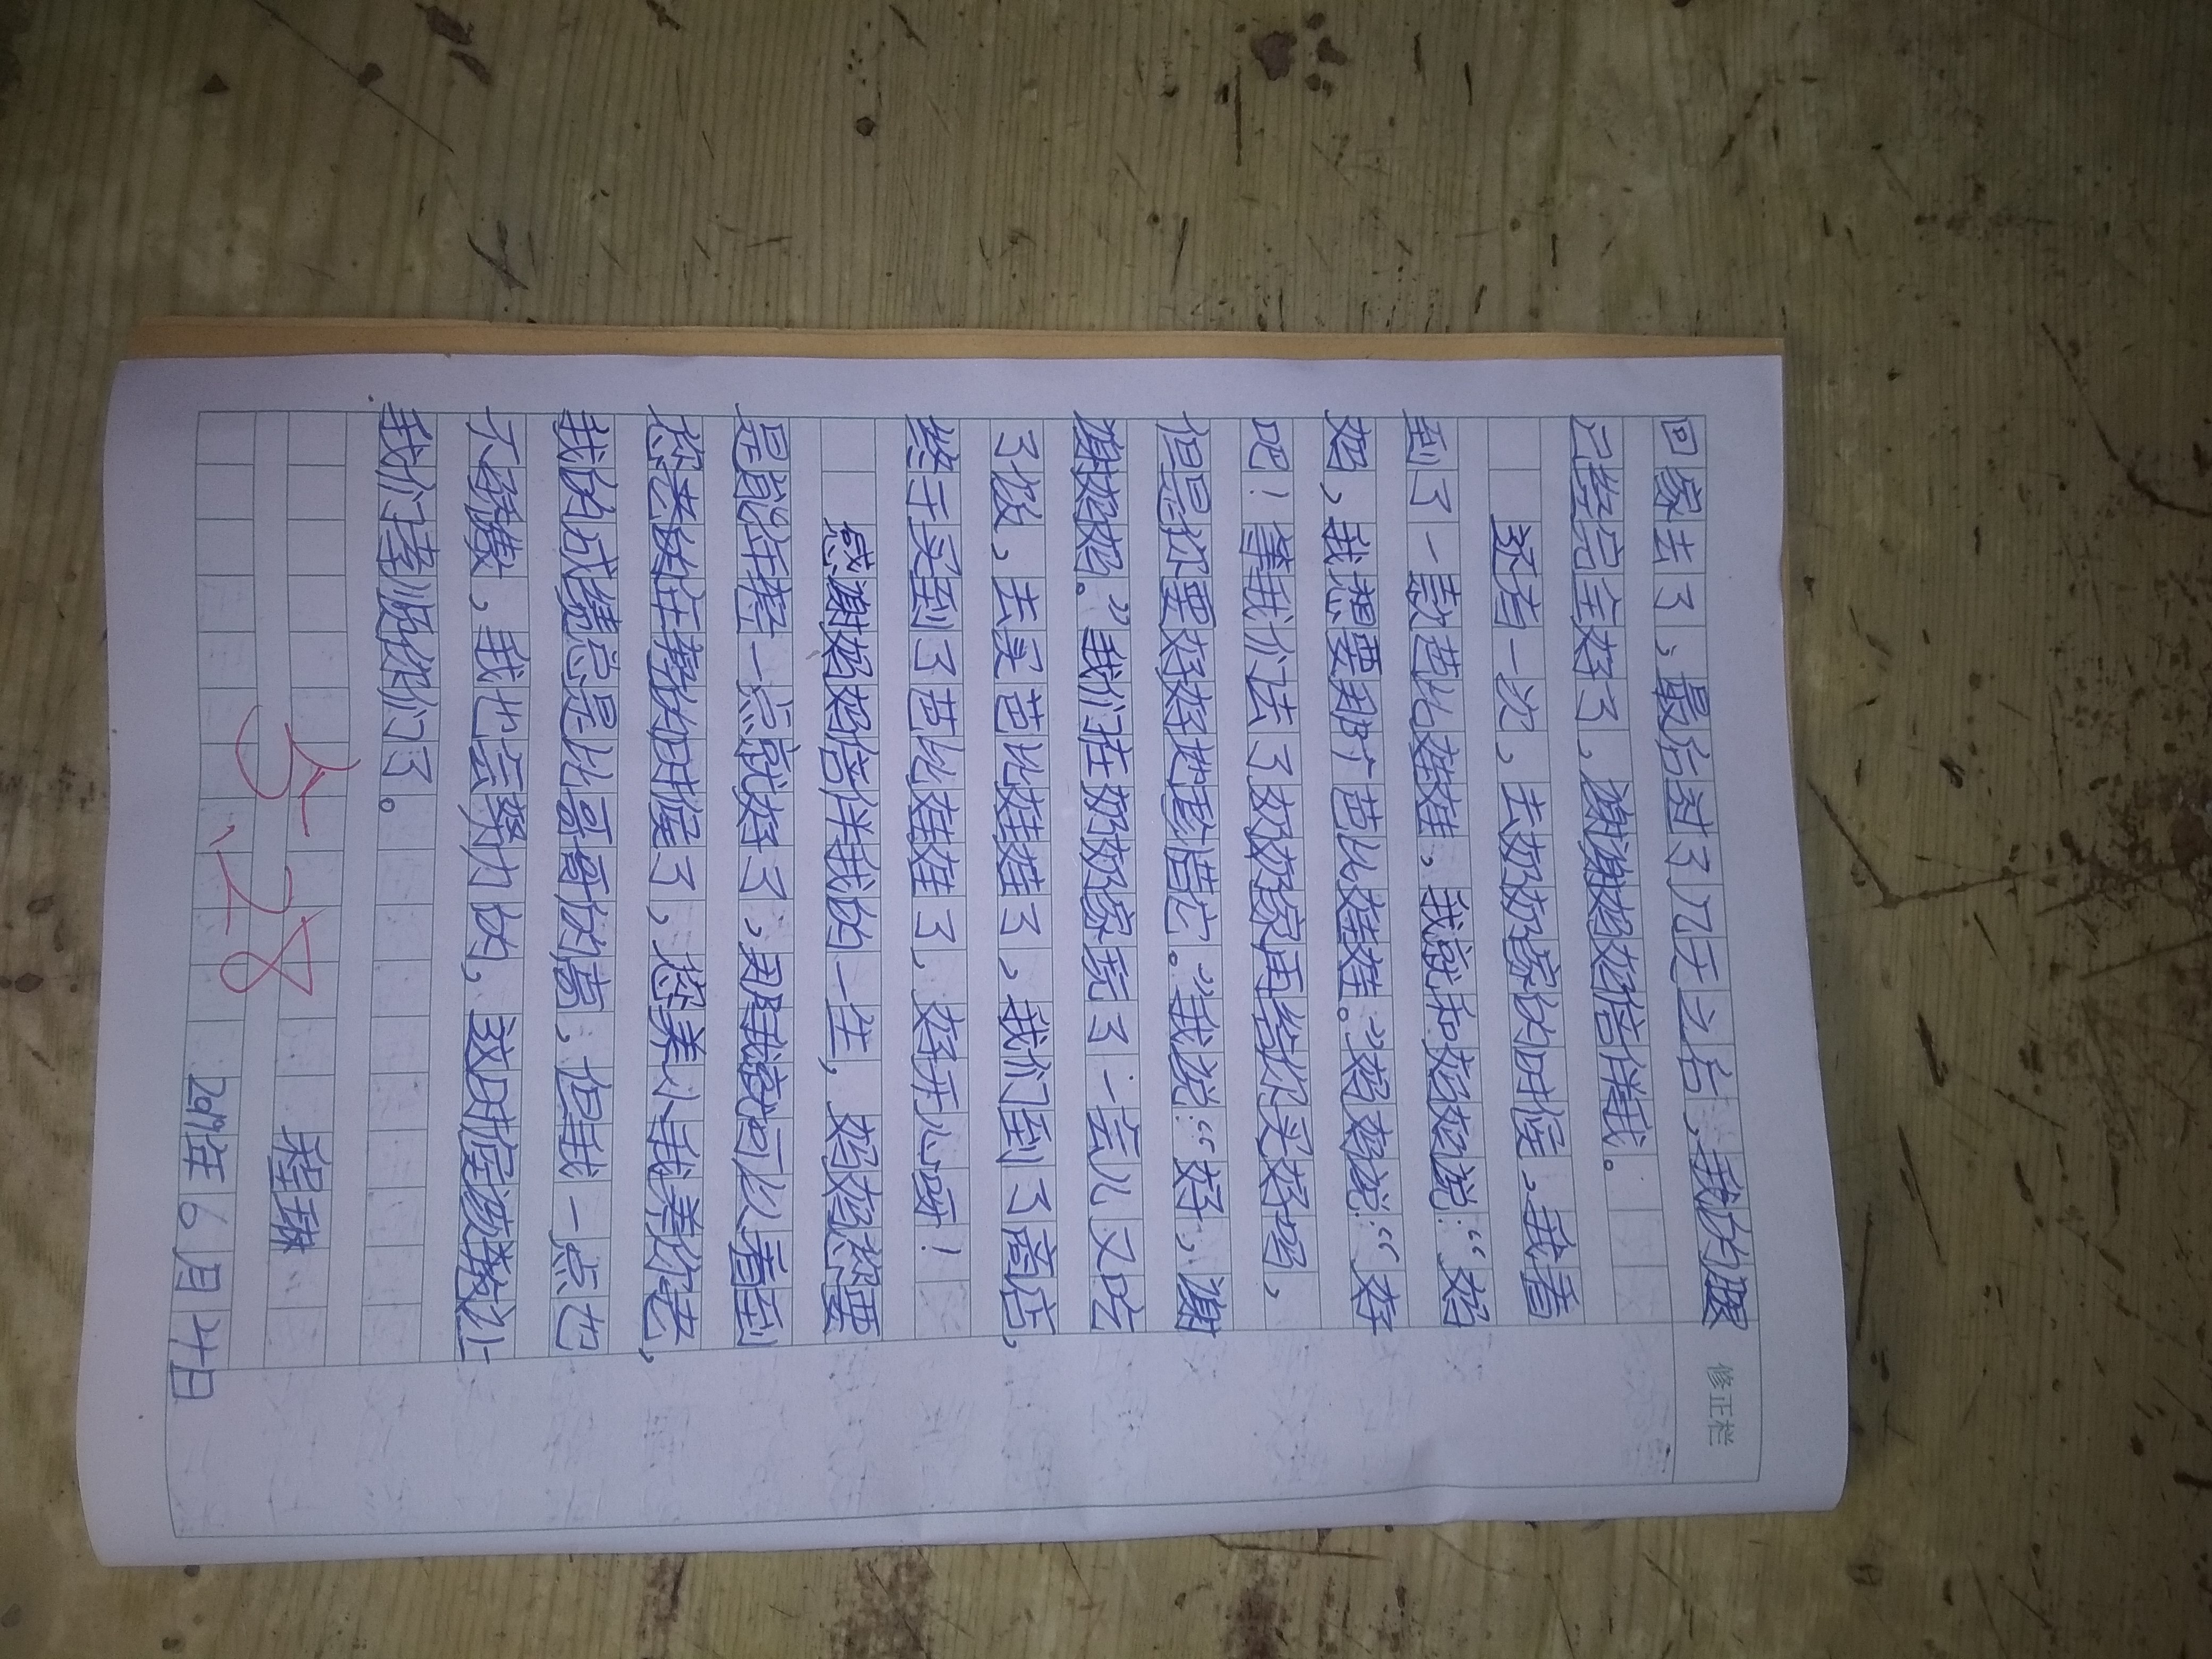 修正栏
回家去了，最后过了几天之后，我的腿
已经完全好了，谢谢妈妈陪伴我。
还有一次，去奶奶家的时候，我看
到了一款芭比娃娃，我就和妈妈说：“妈
妈，我想要那个芭比娃娃。”妈妈说：“好
吧！等我们去了奶奶家再给你买好吗，
但是你要好好地珍惜它。”我说：“好，谢
谢妈妈。”我们在奶奶家玩了一会儿又吃
了饭，去买芭比娃娃了，我们到了商店，
终于买到了芭比娃娃了，好开心呀！
感谢妈妈陪伴我的一生，妈妈您要
是能年轻一点就好了，因我就可以看到
您老的年轻的时候了，您养小我养你老，
我的成绩总是比哥哥的高，但我一点也
不骄傲，我也会努力的，到时候该轮到让
我们孝顺你们了。
程琳
2019年6月24日